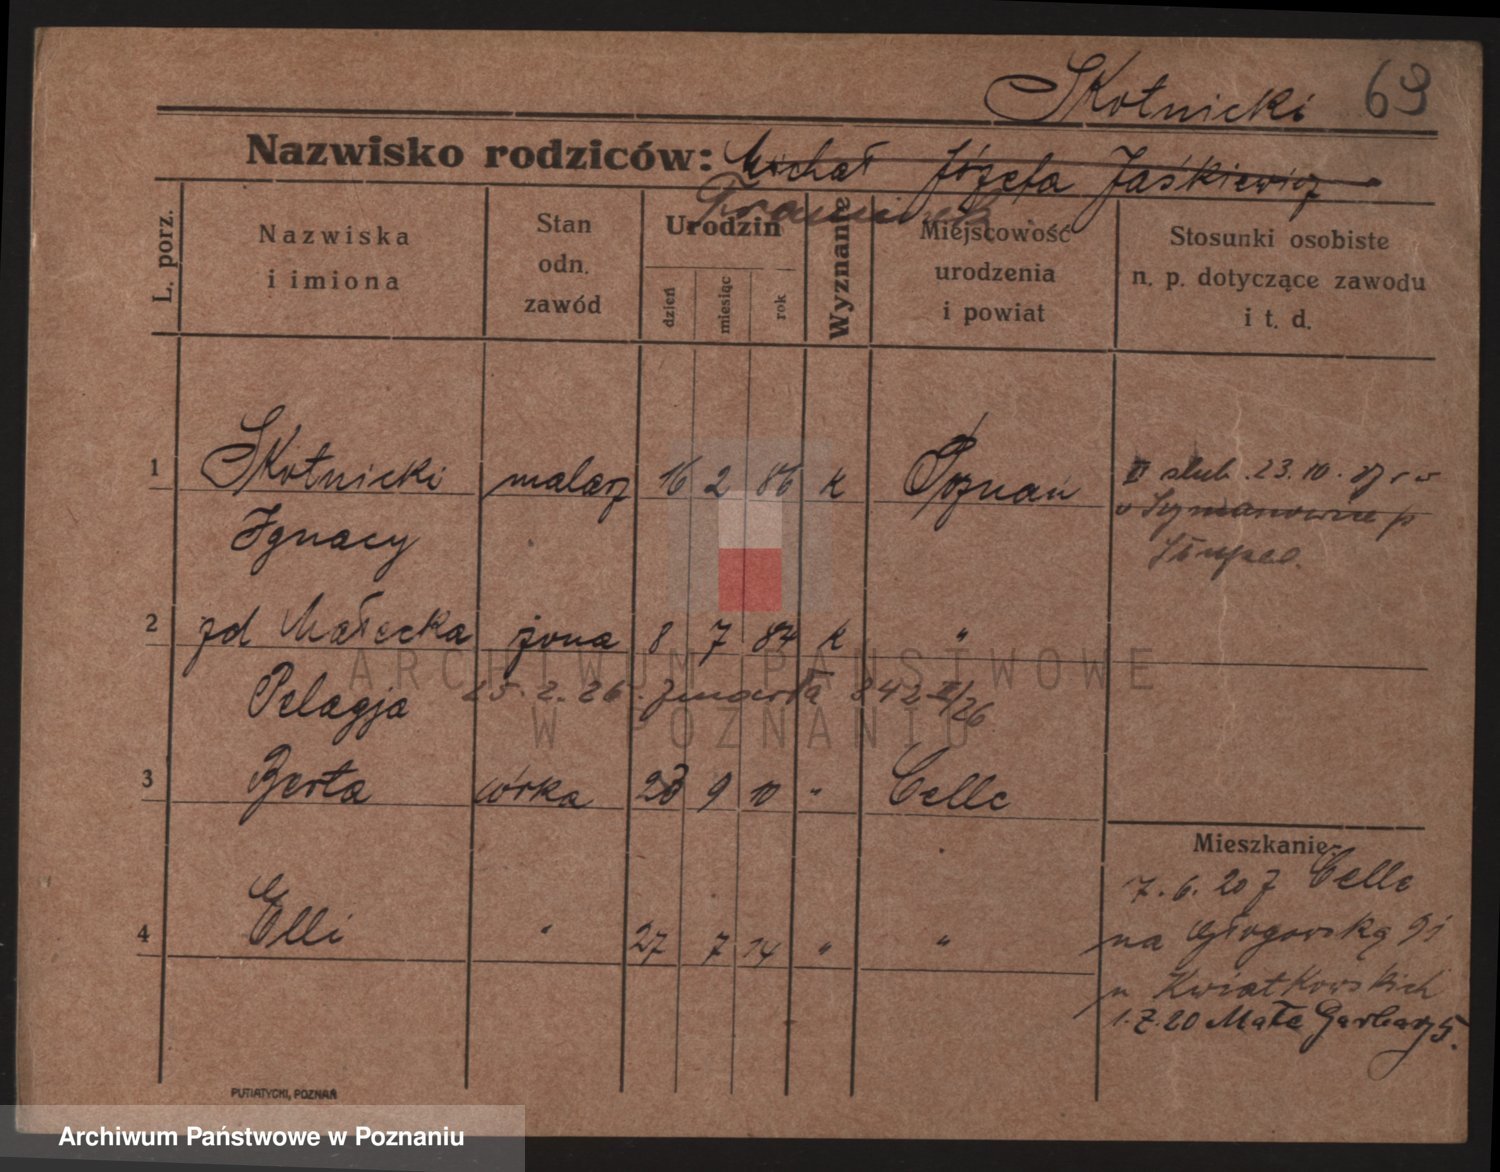 Skotnicki 69
Nazwisko rodziców: Michał Józefa Jaśkiewicz
Franciszek
L. porz.
Nazwiska
i imiona
Stan
odn.
zawód
Urodzin
dzień
miesiąc
rok
Wyznanie
Miejscowość
urodzenia
i powiat
Stosunki osobiste
n. p. dotyczące zawodu
i t. d.
1 Skotnicki malarz 16 2 86 k Poznań
Ignacy
II ślub. 23. 10.
2 zd Małecka żona 8 7 84 k "
Pelagja 25. 2. 26. zmarła 842 II/26
3 Berta córka 28 9 10 " Celle
4 Elli " 27 7 14 " "
Mieszkanie:
7. 6. 20 z Celle
na Głogowską 91
u Kwiatkowskich
1. 7. 20 Małe Garbary 5.
PUTIATYCKI, POZNAŃ
ARCHIWUM PAŃSTWOWE
W POZNANIU
Archiwum Państwowe w Poznaniu